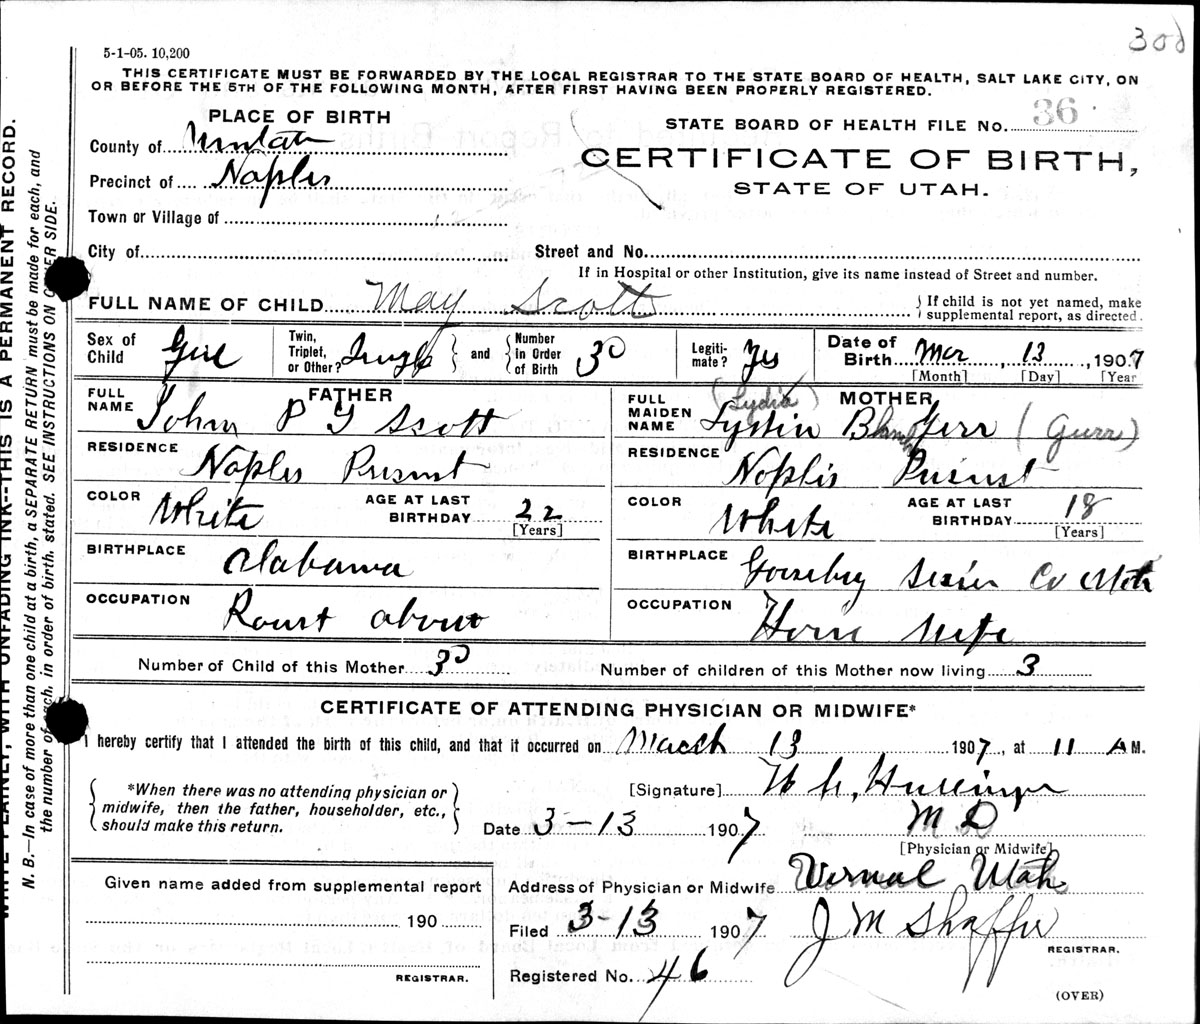 308
5-1-05. 10,200
THIS CERTIFICATE MUST BE FORWARDED BY THE LOCAL REGISTRAR TO THE STATE BOARD OF HEALTH, SALT LAKE CITY, ON
OR BEFORE THE 5TH OF THE FOLLOWING MONTH, AFTER FIRST HAVING BEEN PROPERLY REGISTERED.
PLACE OF BIRTH
STATE BOARD OF HEALTH FILE No. 36
County of
CERTIFICATE OF BIRTH,
Precinct of Naples
STATE OF UTAH.
Town or Village of
City of
Street and No.
If in Hospital or other Institution, give its name instead of Street and number.
FULL NAME OF CHILD May Scott
If child is not yet named, make
supplemental report, as directed.
Sex of
Child Girl
Twin,
Triplet,
or Other?
and
Number
in Order
of Birth 3D
Legiti-
mate? Yes
Date of
Birth Mar 13, 1907
[Month] [Day] [Year
FATHER
FULL
NAME John P G Scott
RESIDENCE Naples
COLOR White
AGE AT LAST
BIRTHDAY 22
[Years]
BIRTHPLACE Alabama
OCCUPATION Roust about
MOTHER
FULL
MAIDEN
NAME (Lydia) (Gurr)
RESIDENCE
COLOR White
AGE AT LAST
BIRTHDAY 18
[Years]
BIRTHPLACE
OCCUPATION
Number of Child of this Mother 3D
Number of children of this Mother now living 3
CERTIFICATE OF ATTENDING PHYSICIAN OR MIDWIFE*
I hereby certify that I attended the birth of this child, and that it occurred on March 13 1907, at 11 A M.
*When there was no attending physician or
midwife, then the father, householder, etc.,
should make this return.
[Signature]
Date 3-13 1907 M D
[Physician or Midwife]
Given name added from supplemental report
190
REGISTRAR.
Address of Physician or Midwife Vernal Utah
Filed 3-13 1907 J M Shaffer
REGISTRAR.
Registered No. 46
(OVER)
WRITE PLAINLY, WITH UNFADING INK--THIS IS A PERMANENT RECORD.
N. B.—In case of more than one child at a birth, a SEPARATE RETURN must be made for each, and
the number of each, in order of birth, stated. SEE INSTRUCTIONS ON OTHER SIDE.